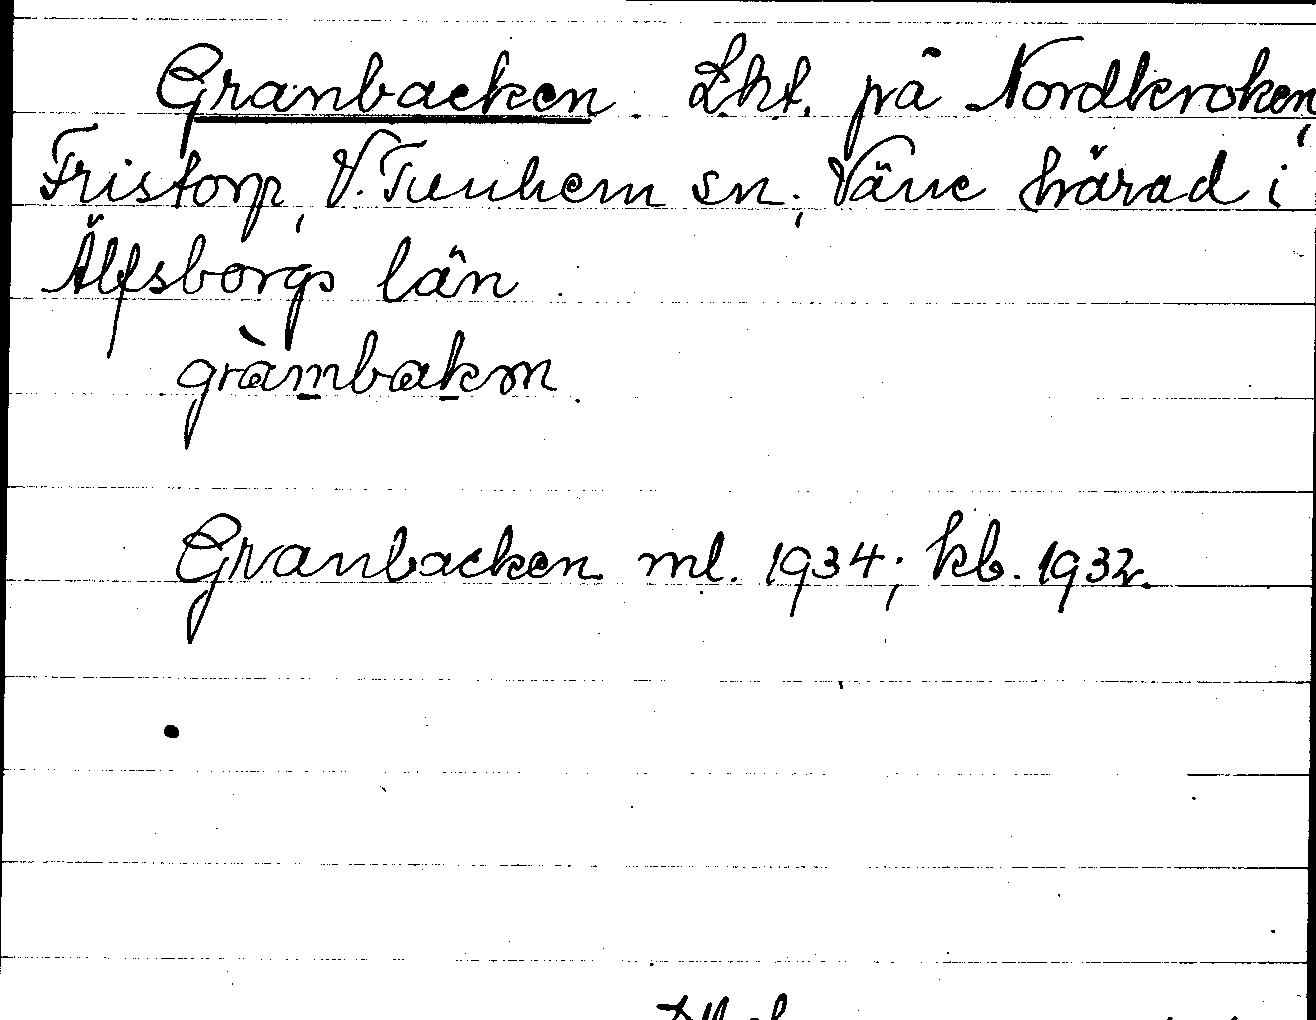 Granbacken. Lht. på Nordkroken,
Fristorp, V. Tunhem sn, Väne härad i
Älfsborgs län.
gràmbakm.
Granbacken ml. 1934; kb. 1932.